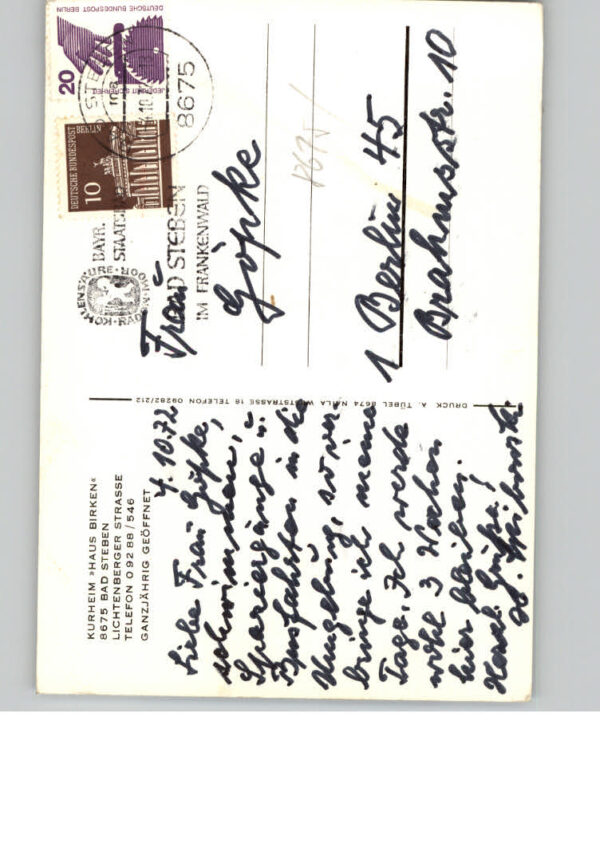 KURHEIM »HAUS BIRKEN«
8675 BAD STEBEN
LICHTENBERGER STRASSE
TELEFON 0 92 88 / 546
GANZJÄHRIG GEÖFFNET
4.10.72
Liebe Frau Göpke,
schwimmen,
Spaziergänge u.
Busfahrten in die
Umgebung, so ver-
bringe ich meine
Tage. Ich werde
wohl 3 Wochen
hier bleiben.
Herzl. Grüße!
DRUCK A. TÜBEL 8674 NAILA WESTSTRASSE 18 TELEFON 09282/212
KOHLENSÄURE · MOOR · BAD
BAYR.
STAATS
BAD STEBEN
IM FRANKENWALD
8675
DEUTSCHE BUNDESPOST
BERLIN
10
DEUTSCHE BUNDESPOST BERLIN
JEDERZEIT SICHERHEIT
20
Frau
Göpke
1 Berlin 45
Brahmsstr. 10